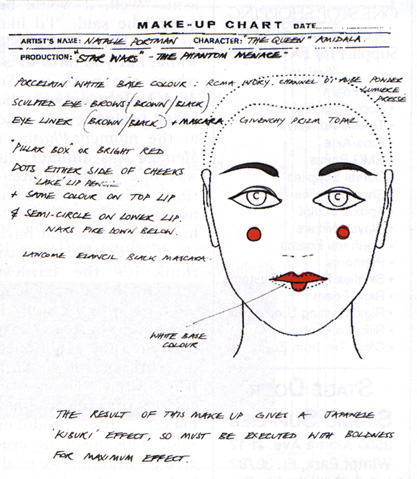 MAKE-UP CHART DATE
ARTIST'S NAME: NATALIE PORTMAN CHARACTER: "THE QUEEN" AMIDALA.
PRODUCTION: "STAR WARS" - THE PHANTOM MENACE -
PORCELAIN 'WHITE' BASE COLOUR: RCMA IVORY. CHANNEL POWDER
LUMIERE
PRESSE
SCULPTED EYE-BROWS (BROWN/BLACK)
EYE LINER (BROWN/BLACK) + MASCARA. GIVENCHY PRIZM TOPAZ
"PILLAR BOX" OR BRIGHT RED
DOTS EITHER SIDE OF CHEEKS
'LAKE' LIP
+ SAME COLOUR ON TOP LIP
& SEMI-CIRCLE ON LOWER LIP.
NARS FIRE DOWN BELOW.
LANCOME BLACK MASCARA.
C C
WHITE BASE
COLOUR
THE RESULT OF THIS MAKE UP GIVES A JAPANESE
'KIBUKI' EFFECT, SO MUST BE EXECUTED WITH BOLDNESS
FOR MAXIMUM EFFECT.